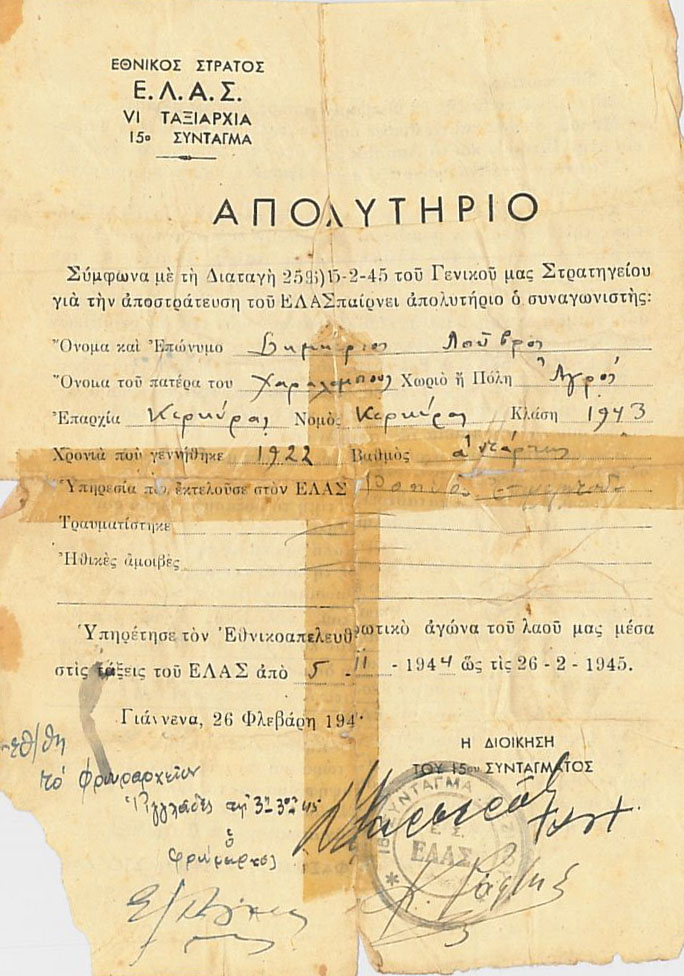 ΕΘΝΙΚΟΣ ΣΤΡΑΤΟΣ
Ε.Λ.Α.Σ.
VI ΤΑΞΙΑΡΧΙΑ
15ο ΣΥΝΤΑΓΜΑ
ΑΠΟΛΥΤΗΡΙΟ
Σύμφωνα μὲ τὴ Διαταγὴ 15-2-45 τοῦ Γενικοῦ μας Στρατηγείου
γιὰ τὴν ἀποστράτευση τοῦ ΕΛΑΣ παίρνει ἀπολυτήριο ὁ συναγωνιστὴς:
Ὄνομα καὶ Ἐπώνυμο Δημήτριος
Ὄνομα τοῦ πατέρα του Χαραλάμπους Χωριὸ ἢ Πόλη Ἀγρός
Ἐπαρχία Κερκύρας Νομὸς Κερκύρας Κλάση 1943
Χρονιὰ ποὺ γεννήθηκε 1922 Βαθμὸς ἀντάρτης
Ὑπηρεσία ποὺ ἐκτελοῦσε στὸν ΕΛΑΣ
Τραυματίστηκε
Ἠθικὲς ἀμοιβὲς
Ὑπηρέτησε τὸν Ἐθνικοαπελευθρωτικὸ ἀγώνα τοῦ λαοῦ μας μέσα
στὶς τάξεις τοῦ ΕΛΑΣ ἀπὸ 5 - II - 1944 ὣς τὶς 26 - 2 - 1945.
Γιάννενα, 26 Φλεβάρη 194
Η ΔΙΟΙΚΗΣΗ
ΤΟΥ 15ου ΣΥΝΤΑΓΜΑΤΟΣ
τὸ φρουραρχεῖον
ὁ
φρούραρχος
ΣΥΝΤΑΓΜΑ
Ε. Σ.
ΕΛΑΣ